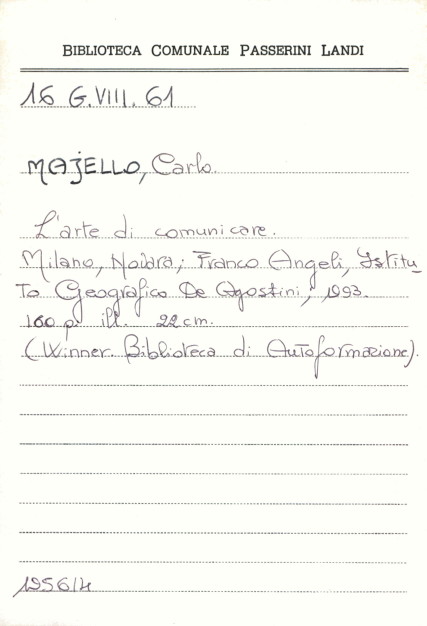 BIBLIOTECA COMUNALE PASSERINI LANDI
16 G.VIII.61
MAJELLO, Carlo.
L'arte di comunicare.
Milano, Novara; Franco Angeli, Istitu_
to Geografico De Agostini, 1993.
160 p. ill. 22 cm.
(Winner. Biblioteca di Autoformazione).
1956/4